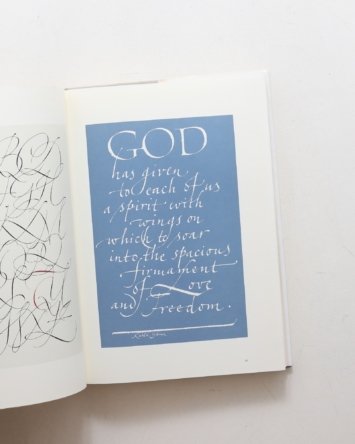 GOD
has given
to each of us
a spirit with
wings on
which to soar
into the spacious
firmament
of Love
and Freedom.